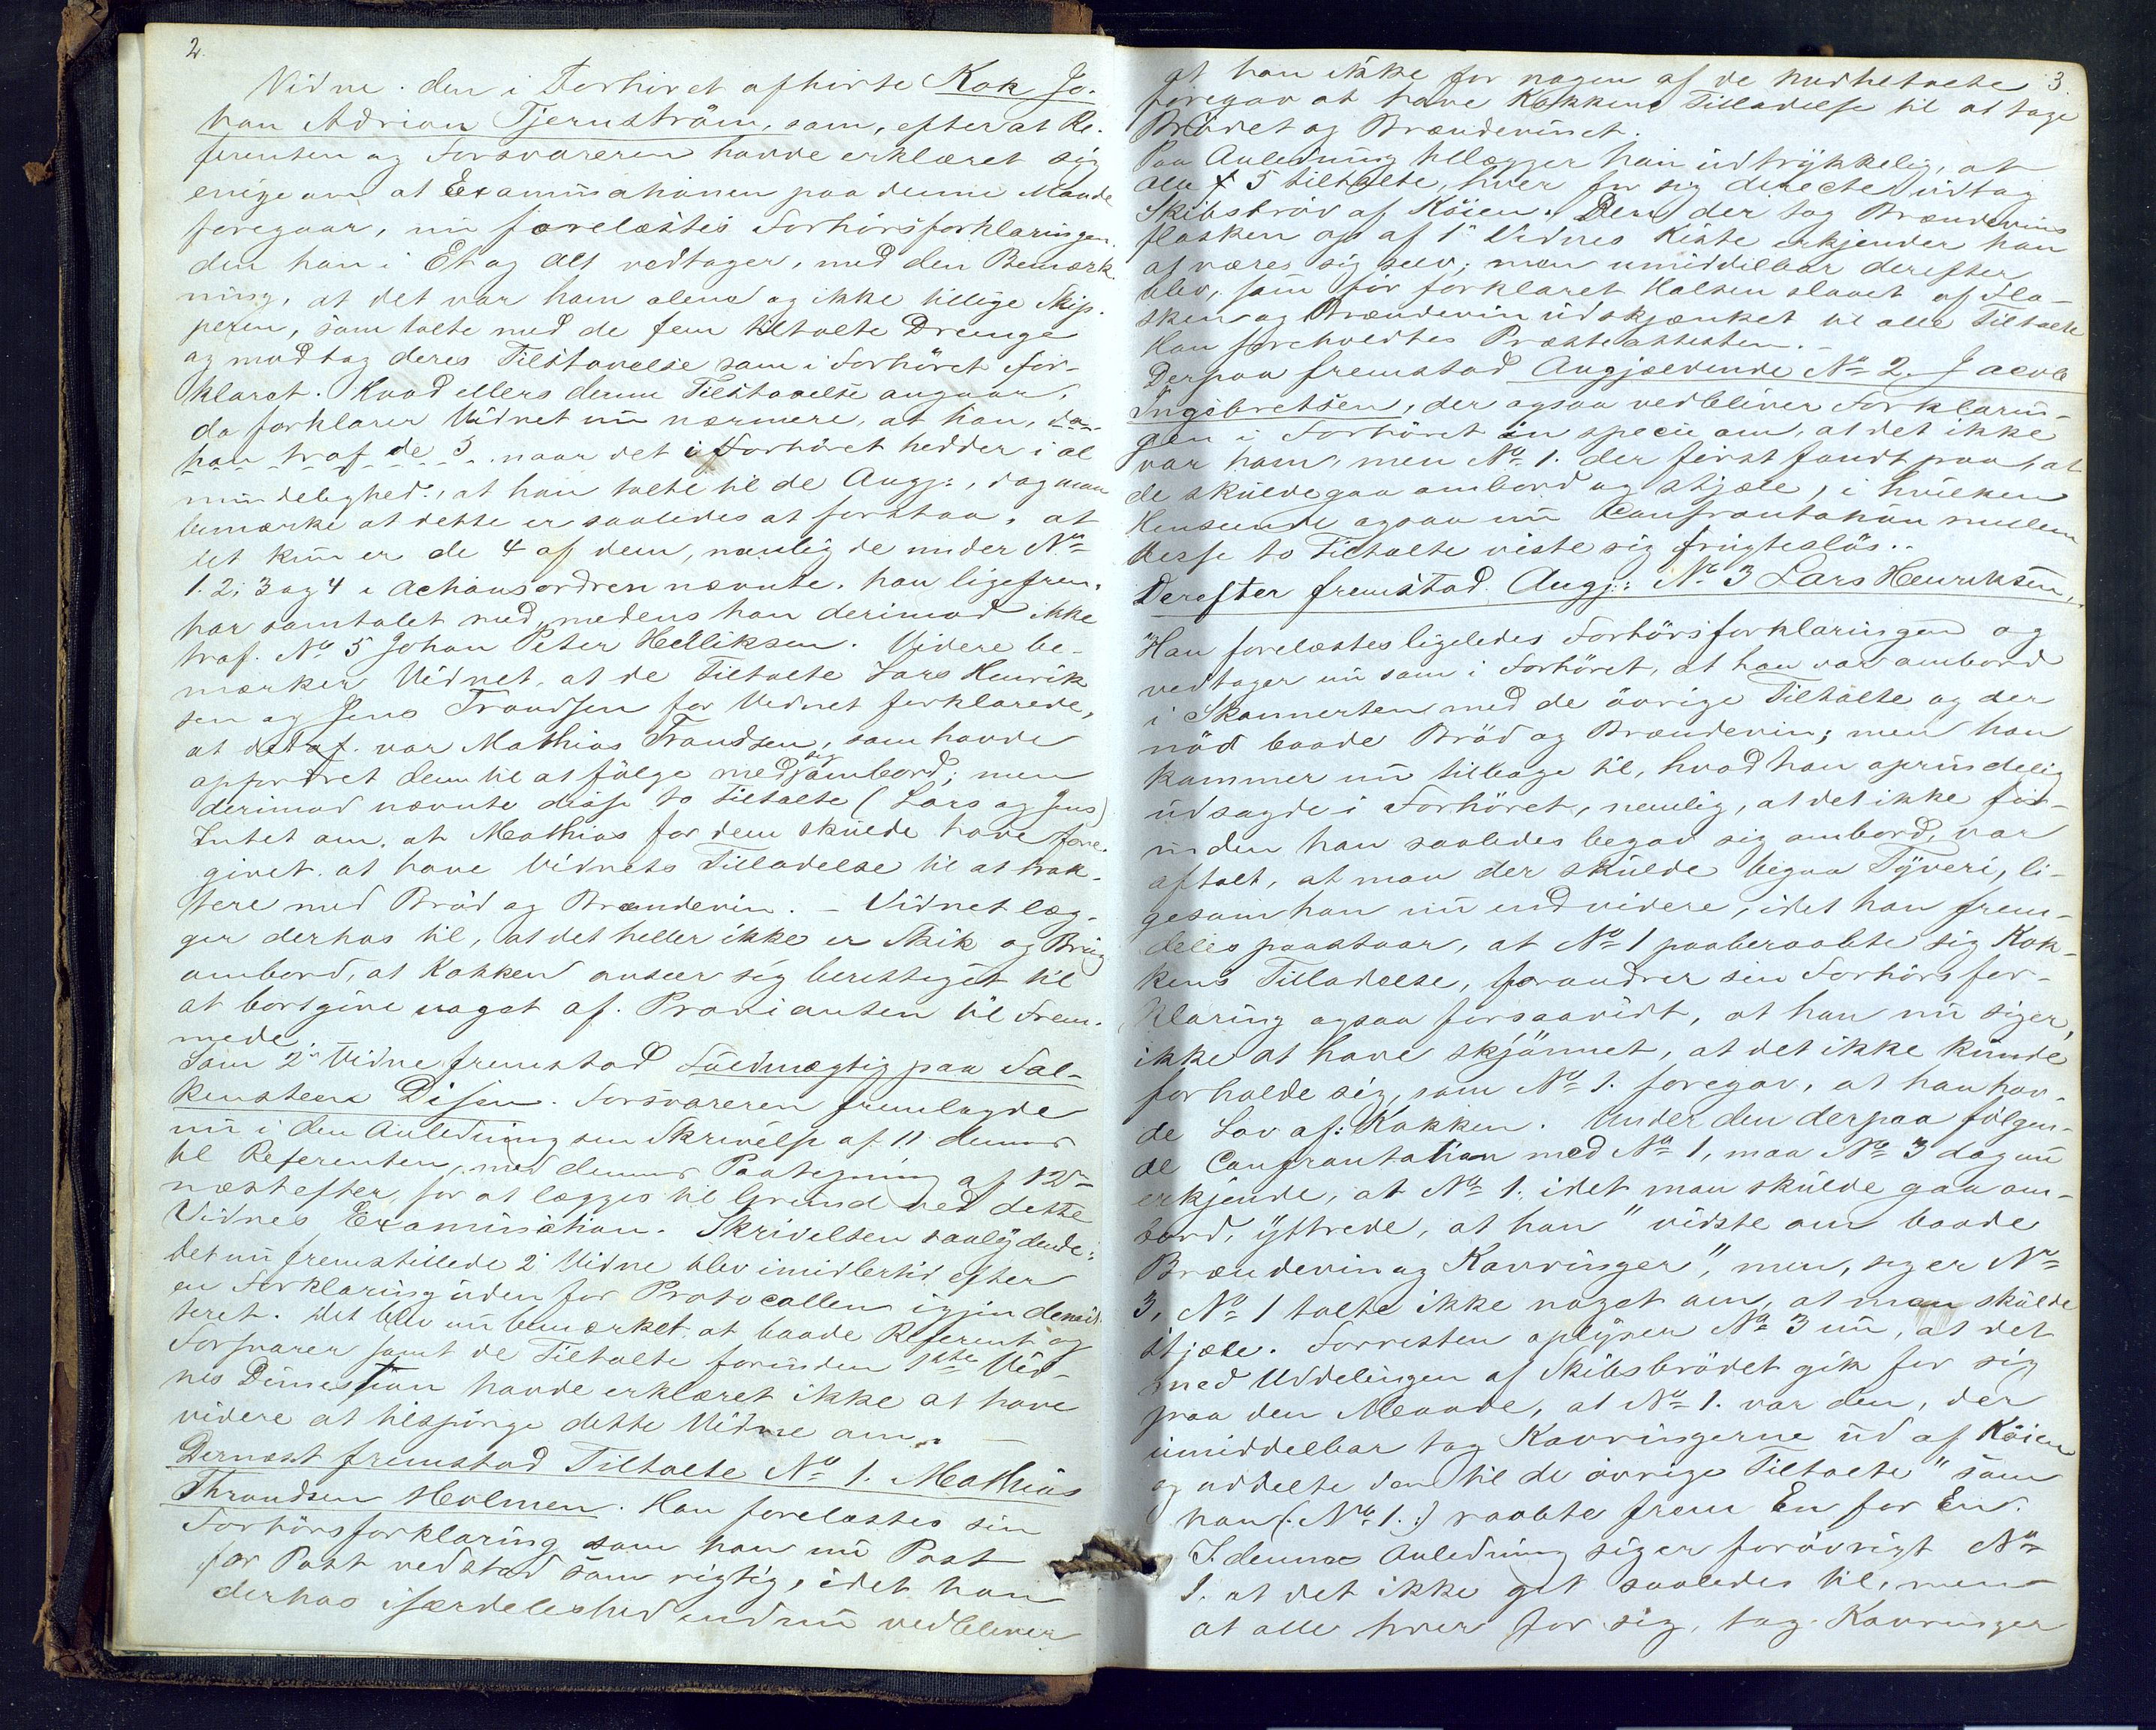 2.
Vidne. den i Forhøret afhørte Kok Jo-
han Adrian Tjernström, som, efterat Re-
ferenten og Forsvareren havde erklæret sig
enige om at Examinationen paa denne Maade
foregaar, nu forelæstes Forhørsforklaringen.
den han i Et og Alt vedtager, med den Bemærk-
ning, at det var ham alene og ikke tillige Skip-
peren, som talte med de fem tiltalte Drenge
og modtog deres Tilstaaelse som i Forhöret for-
klaret. Hvad ellers denne Tilstaaelse angaar,
da forklarer Vidnet nu nærmere, at han,
han traf de 5 naar det i Forhöret hedder i al
mindelighed, at han talte til de Angj:, dog maa
bemærke at dette er saaledes at forstaa, at
det kun er de 4 af dem, nemlig de under No
1. 2, 3 og 4 i Actionsordren nævnte, han ligefrem
har samtalet med, medens han derimod ikke
traf No 5 Johan Peter Helliksen. Videre be-
mærker Vidnet, at de Tiltalte Lars Henrik
sen og Jens Trondsen for Vidnet forklarede,
at det var Mathias Trondsen, som havde
opfordret dem til at fölge med sig ombord; men
derimod nævnte disse to Tiltalte (Lars og Jens)
Intet om, at Mathias for dem skulde have fore-
givet at have Vidnets Tilladelse til at trak-
tere med Bröd og Brændevin. – Vidnet læg-
ger derhos til, at det heller ikke er Skik og Brug
ombord, at Kokken anseer sig berettiget til
at bortgive noget af Provianten til Frem-
mede.
Som 2det Vidne fremstod Fuldmægtig paa Fal-
kensteen Disen. Forsvareren fremlagde
nu i den Anledning sin Skrivelse af 11 dennes
til Referenten, med dennes Paategning af 12te
næstefter, for at lægges til Grund ved dette
Vidnes Examination. Skrivelsen saalydende:
Det nu fremstillede 2det Vidne blev imidlertid efter
en Forklaring uden for Protocollen igjen demit-
teret. Det blev nu bemærket at baade Referent og
Forsvarer samt de Tiltalte forinden 1ste Vid-
nes Dimission havde erklæret ikke at have
videre at tilspörge dette Vidne om. –
Dernæst fremstod Tiltalte No 1. Mathias
Throndsen Holmen. Han forelæstes sin
Forhörsforklaring som han nu Post
for Post vedstod som rigtig, idet han
derhos isærdeleshed endnu vedbliver
3.
at han ikke for nogen af de Medtiltalte
foregav at have Kokkens Tilladelse til at tage
Brödet og Brændevinet.
Paa Anledning tillægger han udtrykkelig, at
alle 5 tiltalte, hver for sig directe udtog
Skibsbröd af Köien. Den, der tog Brændevins
flasken op af 1ste Vidnes Kiste erkjender han
at være sig selv; men umiddelbar derefter
blev, som för forklaret Halsen slaaet af Fla-
sken og Brændevin udskjænket til alle Tiltalte
Han foreholdtes Præsteattesten. –
Derpaa fremstod Angjældende No 2. Jacob
Ingebretsen, der ogsaa vedbliver Forklarin-
gen i Forhöret in specie om, at det ikke
var ham, men No 1. der först fandt paa, at
de skulde gaa ombord og stjæle, i hvilken
Henseende ogsaa nu Confrontation mellem
disse to Tiltalte viste sig frugteslös..
Derefter fremstod Angj: No 3 Lars Henriksen,.
Han forelæstes ligeledes Forhörsforklaringen og
vedtager nu som i Forhöret, at han var ombord
i Skonnerten med de övrige Tiltalte og der
nöd baade Bröd og Brændevin; men han
kommer nu tilbage til, hvad han oprindelig
udsagde i Forhöret, nemlig, at det ikke for-
inden han saaledes begav sig ombord, var
aftalt, at man der skulde begaa Tyveri, li-
gesom han nu endvidere, idet han frem-
deles paastaar, at No 1 paaberaabte sig Kok-
kens Tilladelse, forandrer sin Forhörsfor-
klaring ogsaa forsaavidt, at han nu siger,
ikke at have skjönnet, at det ikke kunde
forholde sig, som No 1. foregav, at han hav-
de Lov af: Kokken. Under den derpaa fölgen-
de Confrontation med No 1, maa No 3 dog nu
erkjende, at No 1. idet man skulde gaa om-
bord, yttrede, at han "vidste om baade
Brændevin og Kavringer", men, siger No
3, No 1 talte ikke noget om, at man skulde
stjæle. Forresten oplyser No 3 nu, at det
med Uddelingen af Skibsbrödet gik for sig
paa den Maade, at No 1. var den, der
umiddelbar tog Kavringerne ud af Köien
og uddelte dem til de övrige Tiltalte "som
han (: No 1. :) raabte frem En for En.
I denne Anledning siger forövrigt No
1. at det ikke gik saaledes til, men
at alle hver for sig, tog Kavringer